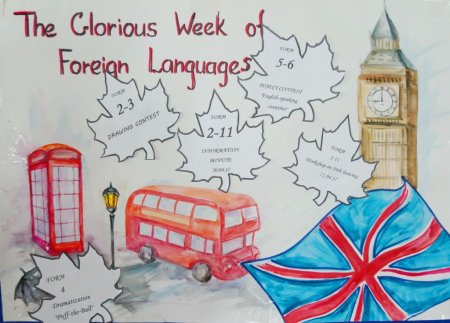 The Glorious Week of
Foreign Languages
FORM
5-6
POJECT CONTEST
"English-speaking
countries"
FORM
2-3
DRAWING CONTEST
FORM
2-11
INFORMATION
MINUTE
20.04.17
FORM
Workshop on Irish dancing
FORM
4
Dramatization
"Puff-the-Ball"